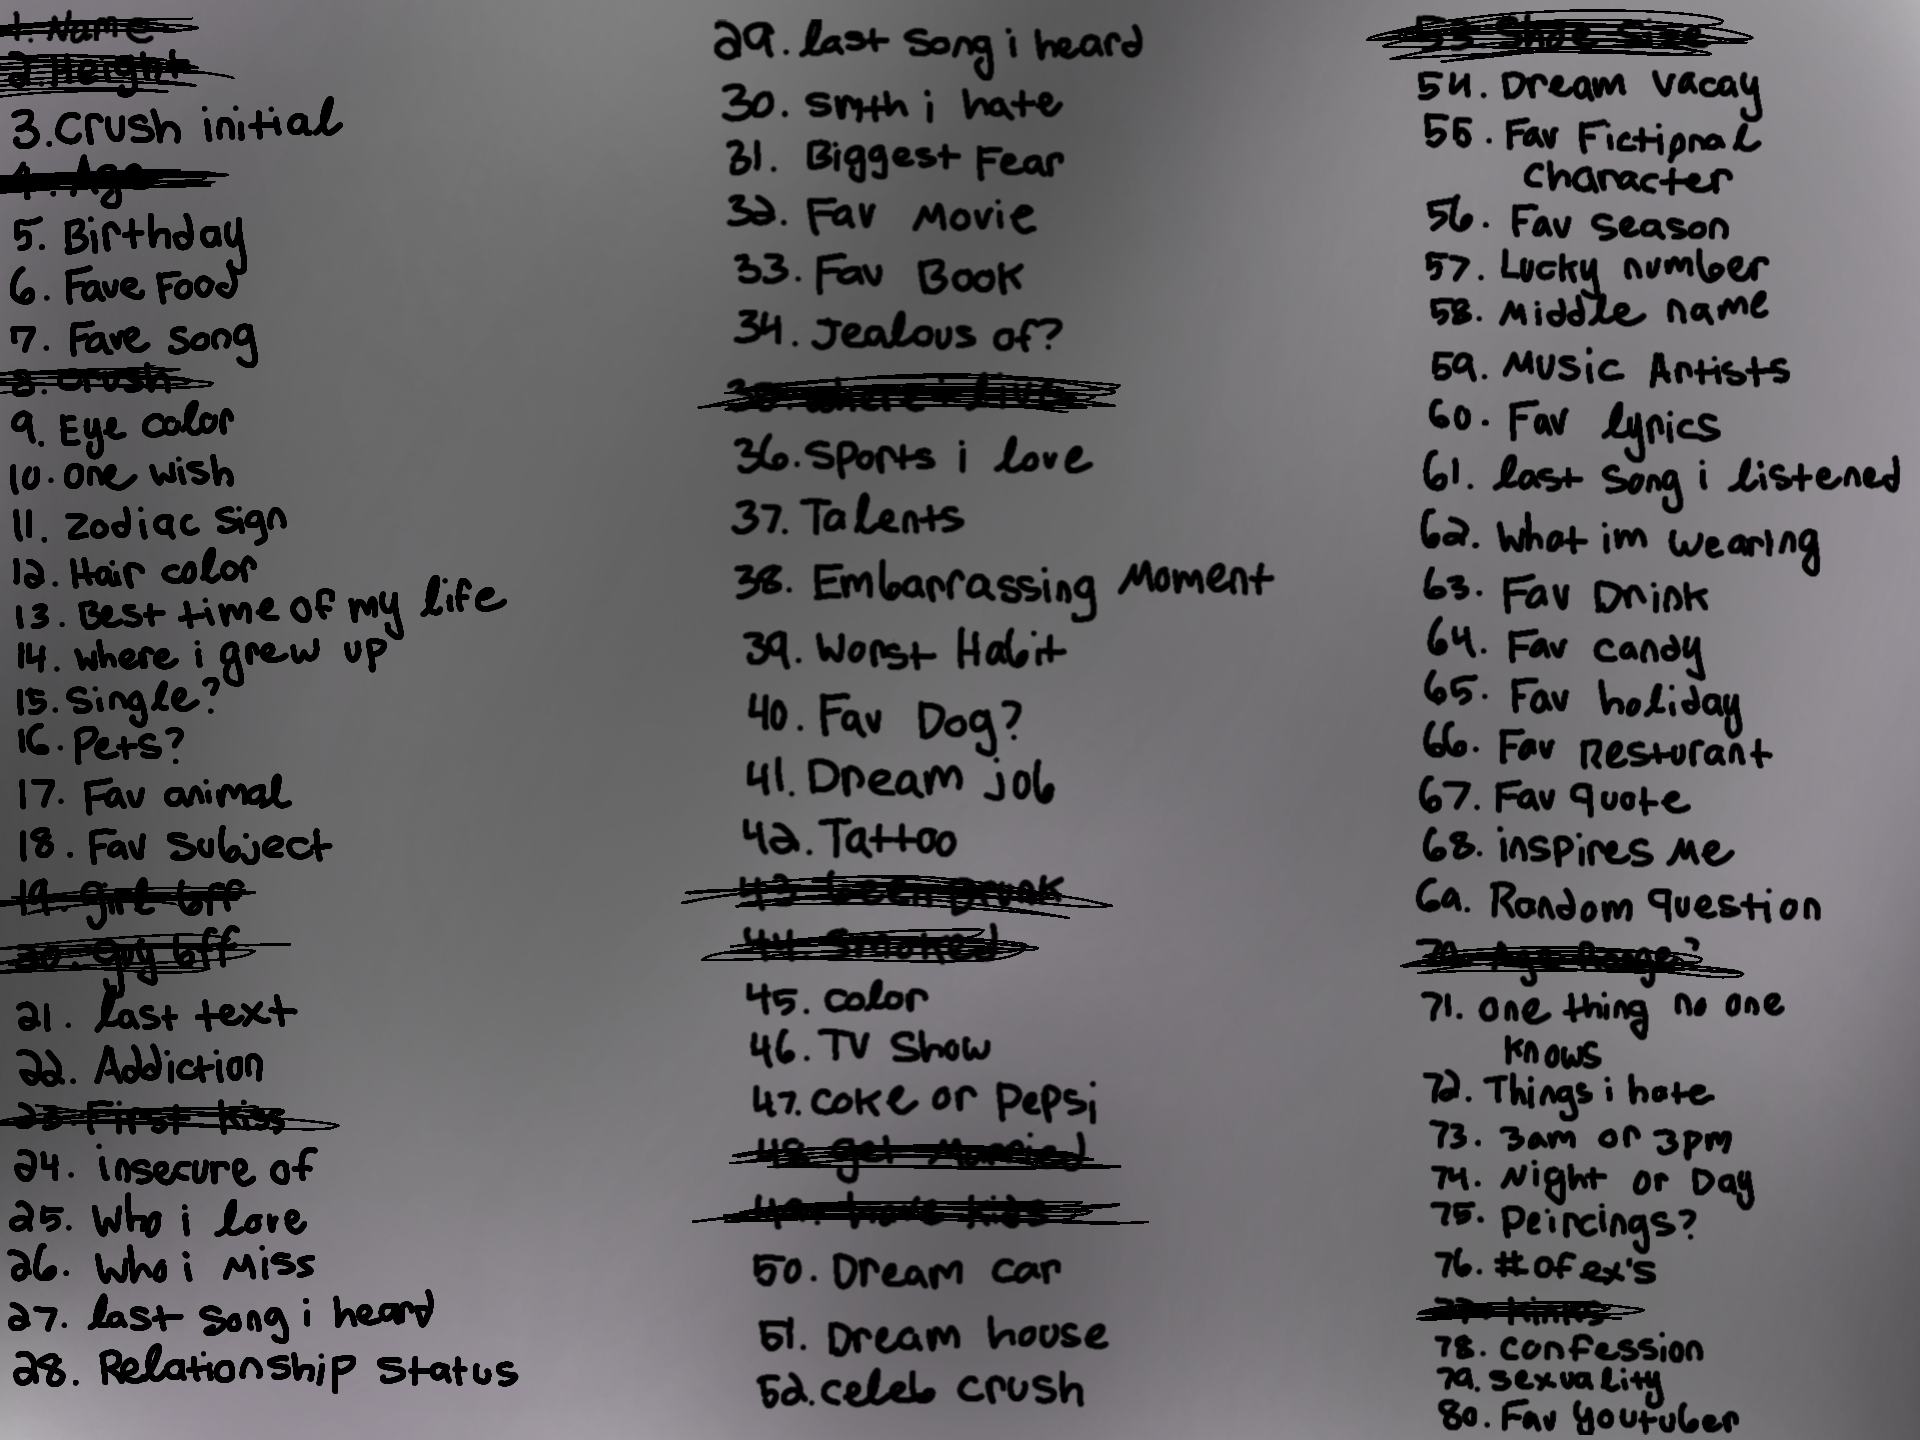 1. Name
2. Height
3. Crush initial
4. Age
5. Birthday
6. Fave Food
7. Fave song
8. Crush
9. Eye color
10. one wish
11. Zodiac Sign
12. Hair color
13. Best time of my life
14. where i grew up
15. Single?
16. Pets?
17. Fav animal
18. Fav Subject
19. girl bff
20. Guy bff
21. last text
22. Addiction
23. First kiss
24. insecure of
25. Who i love
26. Who i Miss
27. last song i heard
28. Relationship Status
29. last song i heard
30. smth i hate
31. Biggest Fear
32. Fav Movie
33. Fav Book
34. Jealous of?
35. where i live
36. Sports i love
37. Talents
38. Embarrassing Moment
39. Worst Habit
40. Fav Dog?
41. Dream job
42. Tattoo
43. been Drunk
44. Smoked
45. color
46. TV Show
47. coke or Pepsi
48. get Married
49. have kids
50. Dream car
51. Dream house
52. celeb crush
53. Shoe Size
54. Dream vacay
55. Fav Fictional
character
56. Fav season
57. Lucky number
58. Middle name
59. Music Artists
60. Fav lyrics
61. last song i listened
62. What im wearing
63. Fav Drink
64. Fav candy
65. Fav holiday
66. Fav Resturant
67. Fav quote
68. inspires Me
69. Random question
70. Age Range?
71. one thing no one
knows
72. Things i hate
73. 3am or 3pm
74. Night or Day
75. Peircings?
76. # of ex's
77. kinks
78. confession
79. sexuality
80. Fav Youtuber